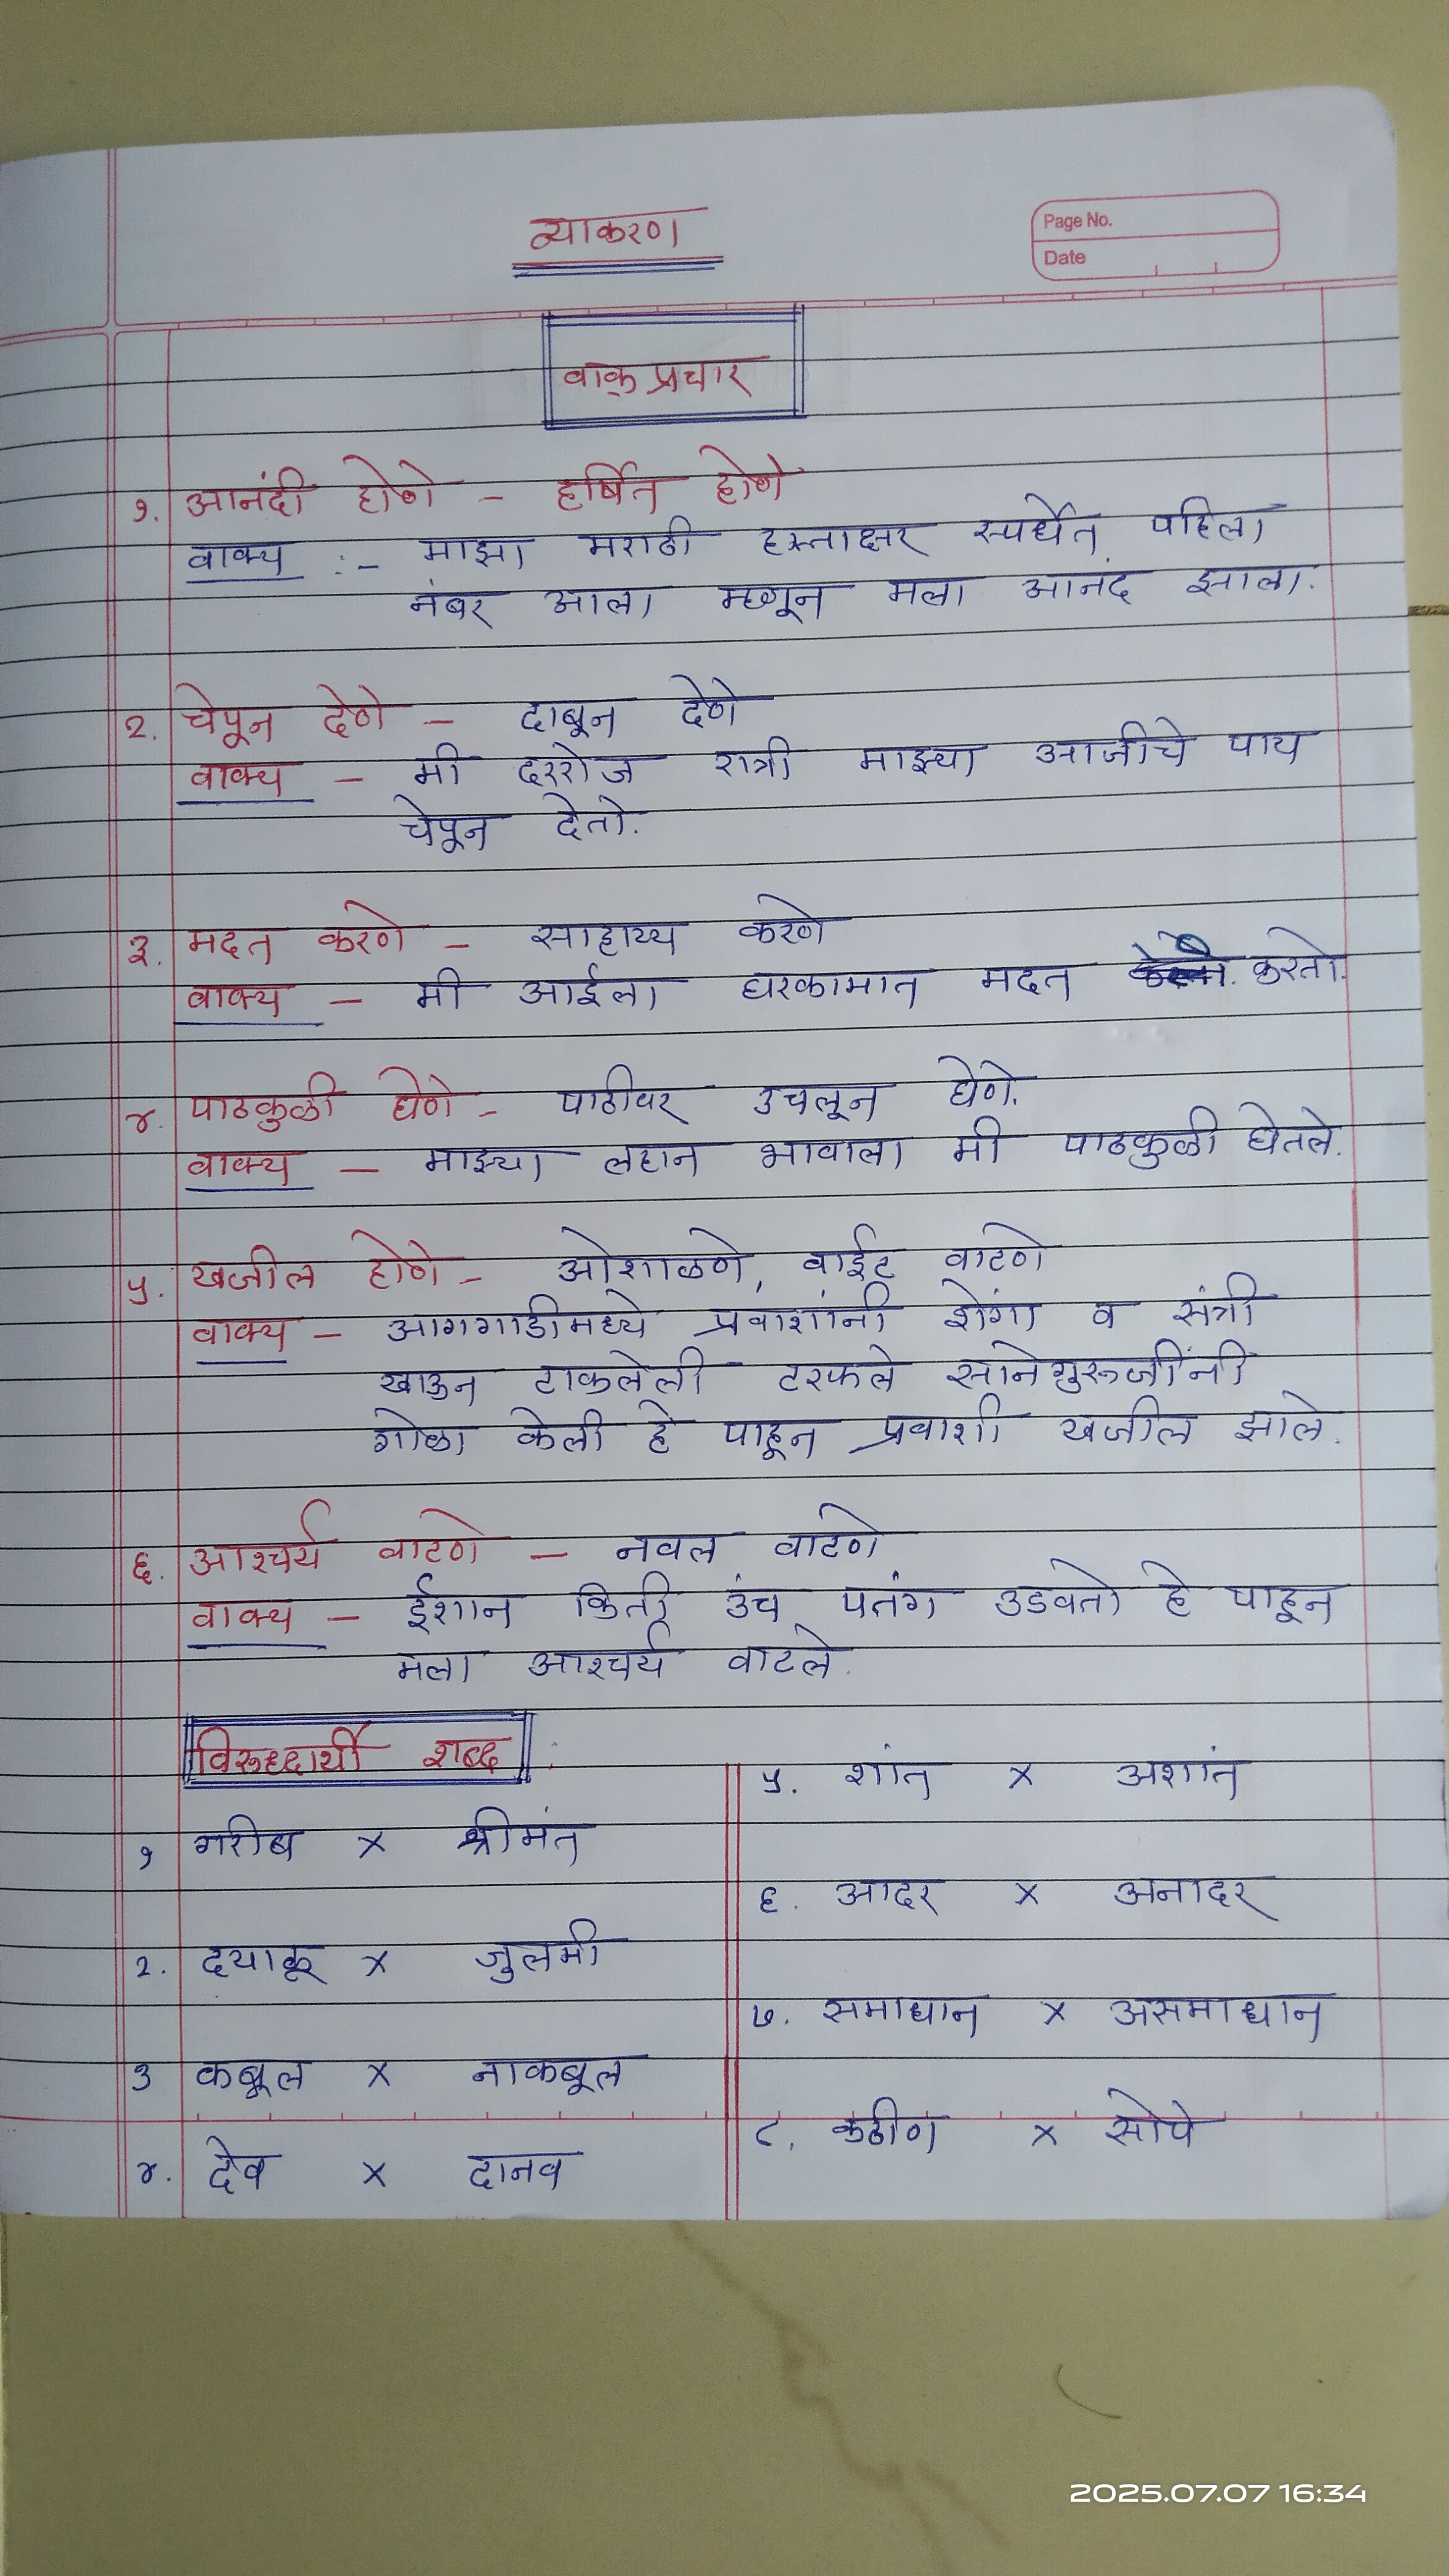 व्याकरण
Page No.
Date
वाक् प्रचार
१. आनंदी होणे - हर्षित होणे
वाक्य :- माझा मराठी हस्ताक्षर स्पर्धेत पहिला
नंबर आला म्हणून मला आनंद झाला.
२. चेपून देणे - दाबून देणे
वाक्य - मी दररोज रात्री माझ्या आजीचे पाय
चेपून देतो.
३. मदत करणे - साहाय्य करणे
वाक्य - मी आईला घरकामात मदत करतो.
४. पाठकुळी घेणे - पाठीवर उचलून घेणे.
वाक्य - माझ्या लहान भावाला मी पाठकुळी घेतले.
५. खजील होणे - ओशाळणे, वाईट वाटणे
वाक्य - आगगाडीमध्ये प्रवाशांनी शेंगा व संत्री
खाऊन टाकलेली टरफले सानेगुरुजींनी
गोळा केली हे पाहून प्रवाशी खजील झाले.
६. आश्चर्य वाटणे - नवल वाटणे
वाक्य - ईशान किती उंच पतंग उडवतो हे पाहून
मला आश्चर्य वाटले.
विरुद्धार्थी शब्द
१ गरीब x श्रीमंत
२. दयाळू x जुलमी
३ कबूल x नाकबूल
४. देव x दानव
५. शांत x अशांत
६. आदर x अनादर
७. समाधान x असमाधान
८. कठीण x सोपे
2025.07.07 16:34